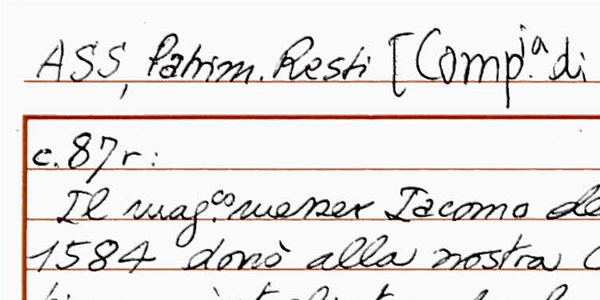 ASS, Patrim. Resti [Comp.ia di
c. 87r:
Il mag.co messer Iacomo de
1584 donò alla nostra C